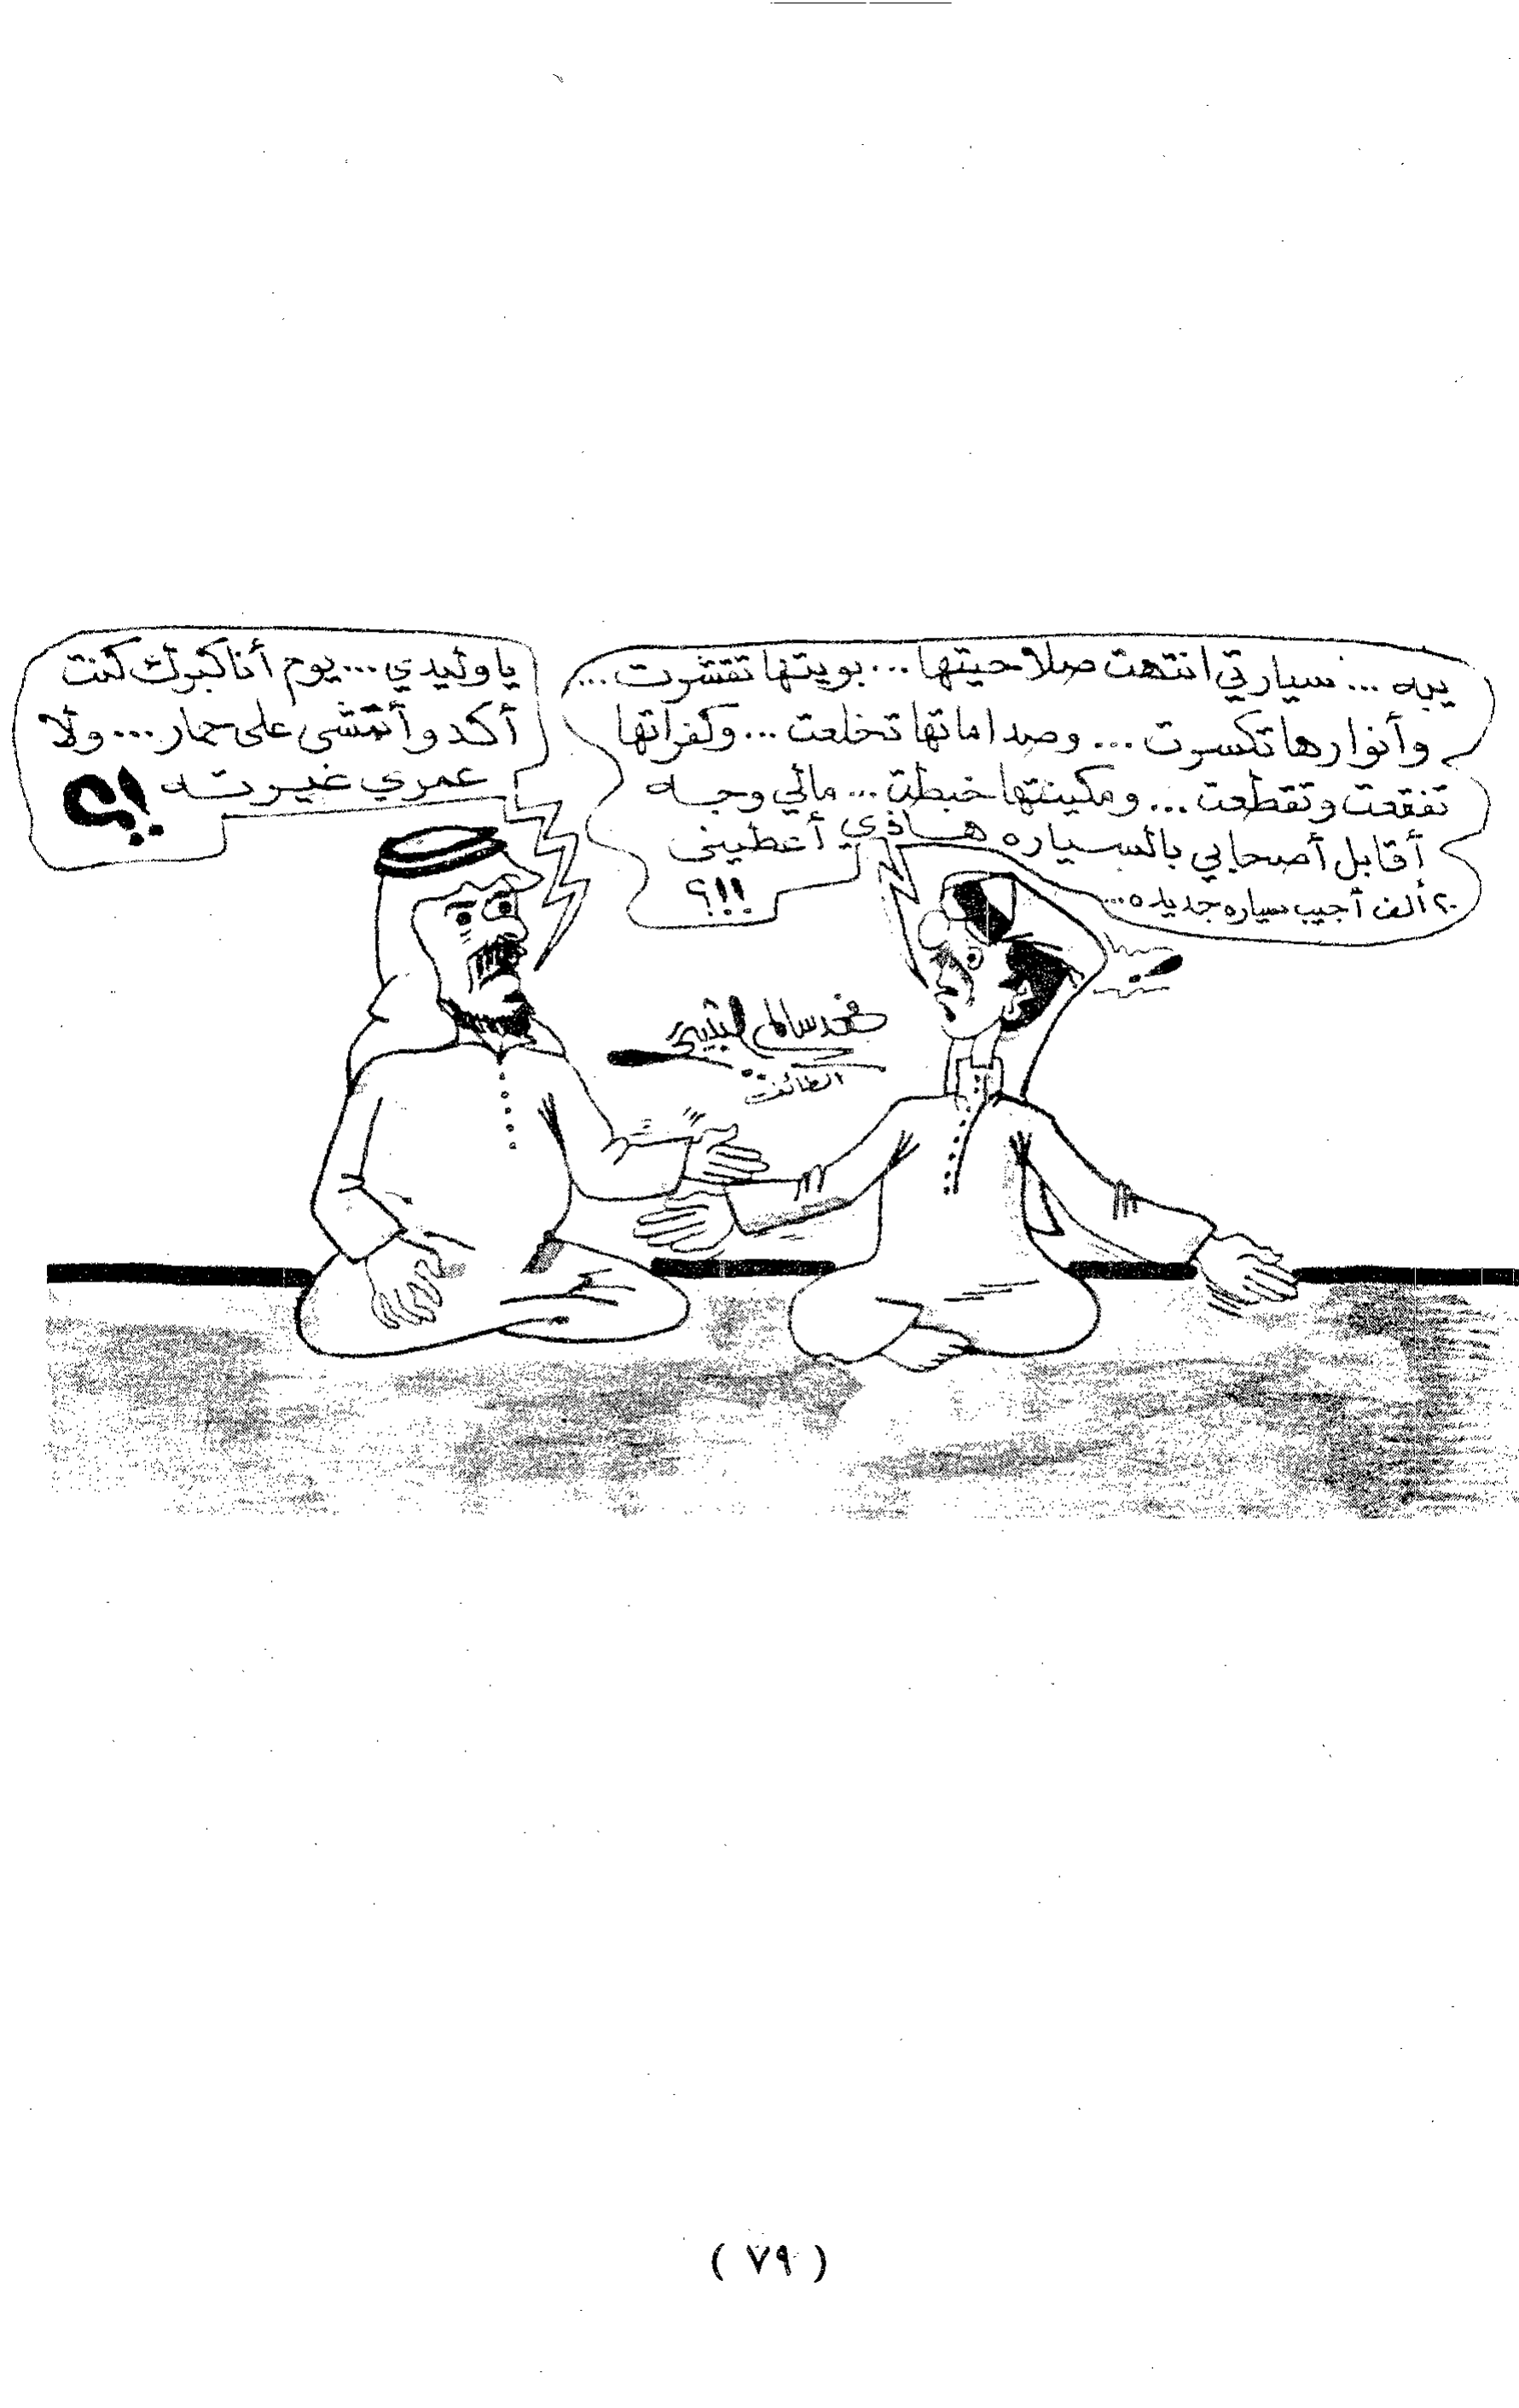 يبه ... سيارتي انتهت صلاحيتها ... بويتها تقشرت ...
وأنوارها تكسرت ... وصداماتها تخلعت ... وكفراتها
تفقعت وتقطعت ... ومكينتها خبطت ... مالي وجه
أقابل أصحابي بالسياره هاذي أعطيني
٢٠ ألف أجيب سياره جديده ...
!!!؟
يا وليدي ... يوم أنا كبرك كنت
أكد وأتمشى على حمار ... ولا
عمري غيرته
!؟
فهد سالم
الطائف
( ٧٩ )